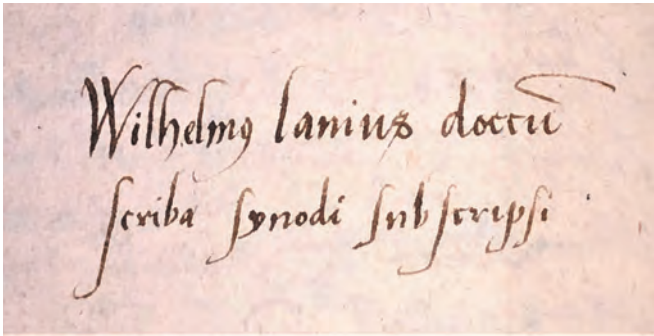 Wilhelmꝰ lanius doccũ
scriba synodi subscripsi